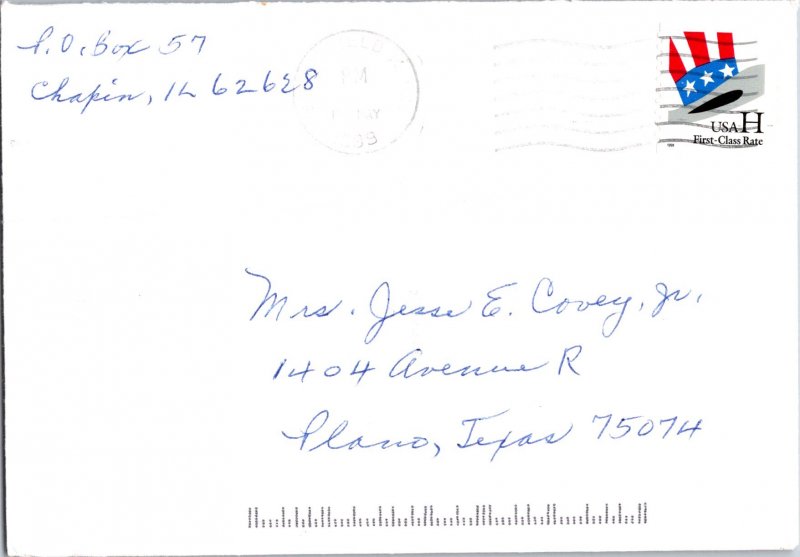 P.O. Box 57
Chapin, IL 62628
PM
MAY
USA H
First-Class Rate
Mrs. Jesse E. Covey, Jr.
1404 Avenue R
Plano, Texas 75074